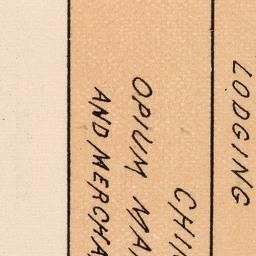 LODGING
CHI
OPIUM MA
AND MERCHA